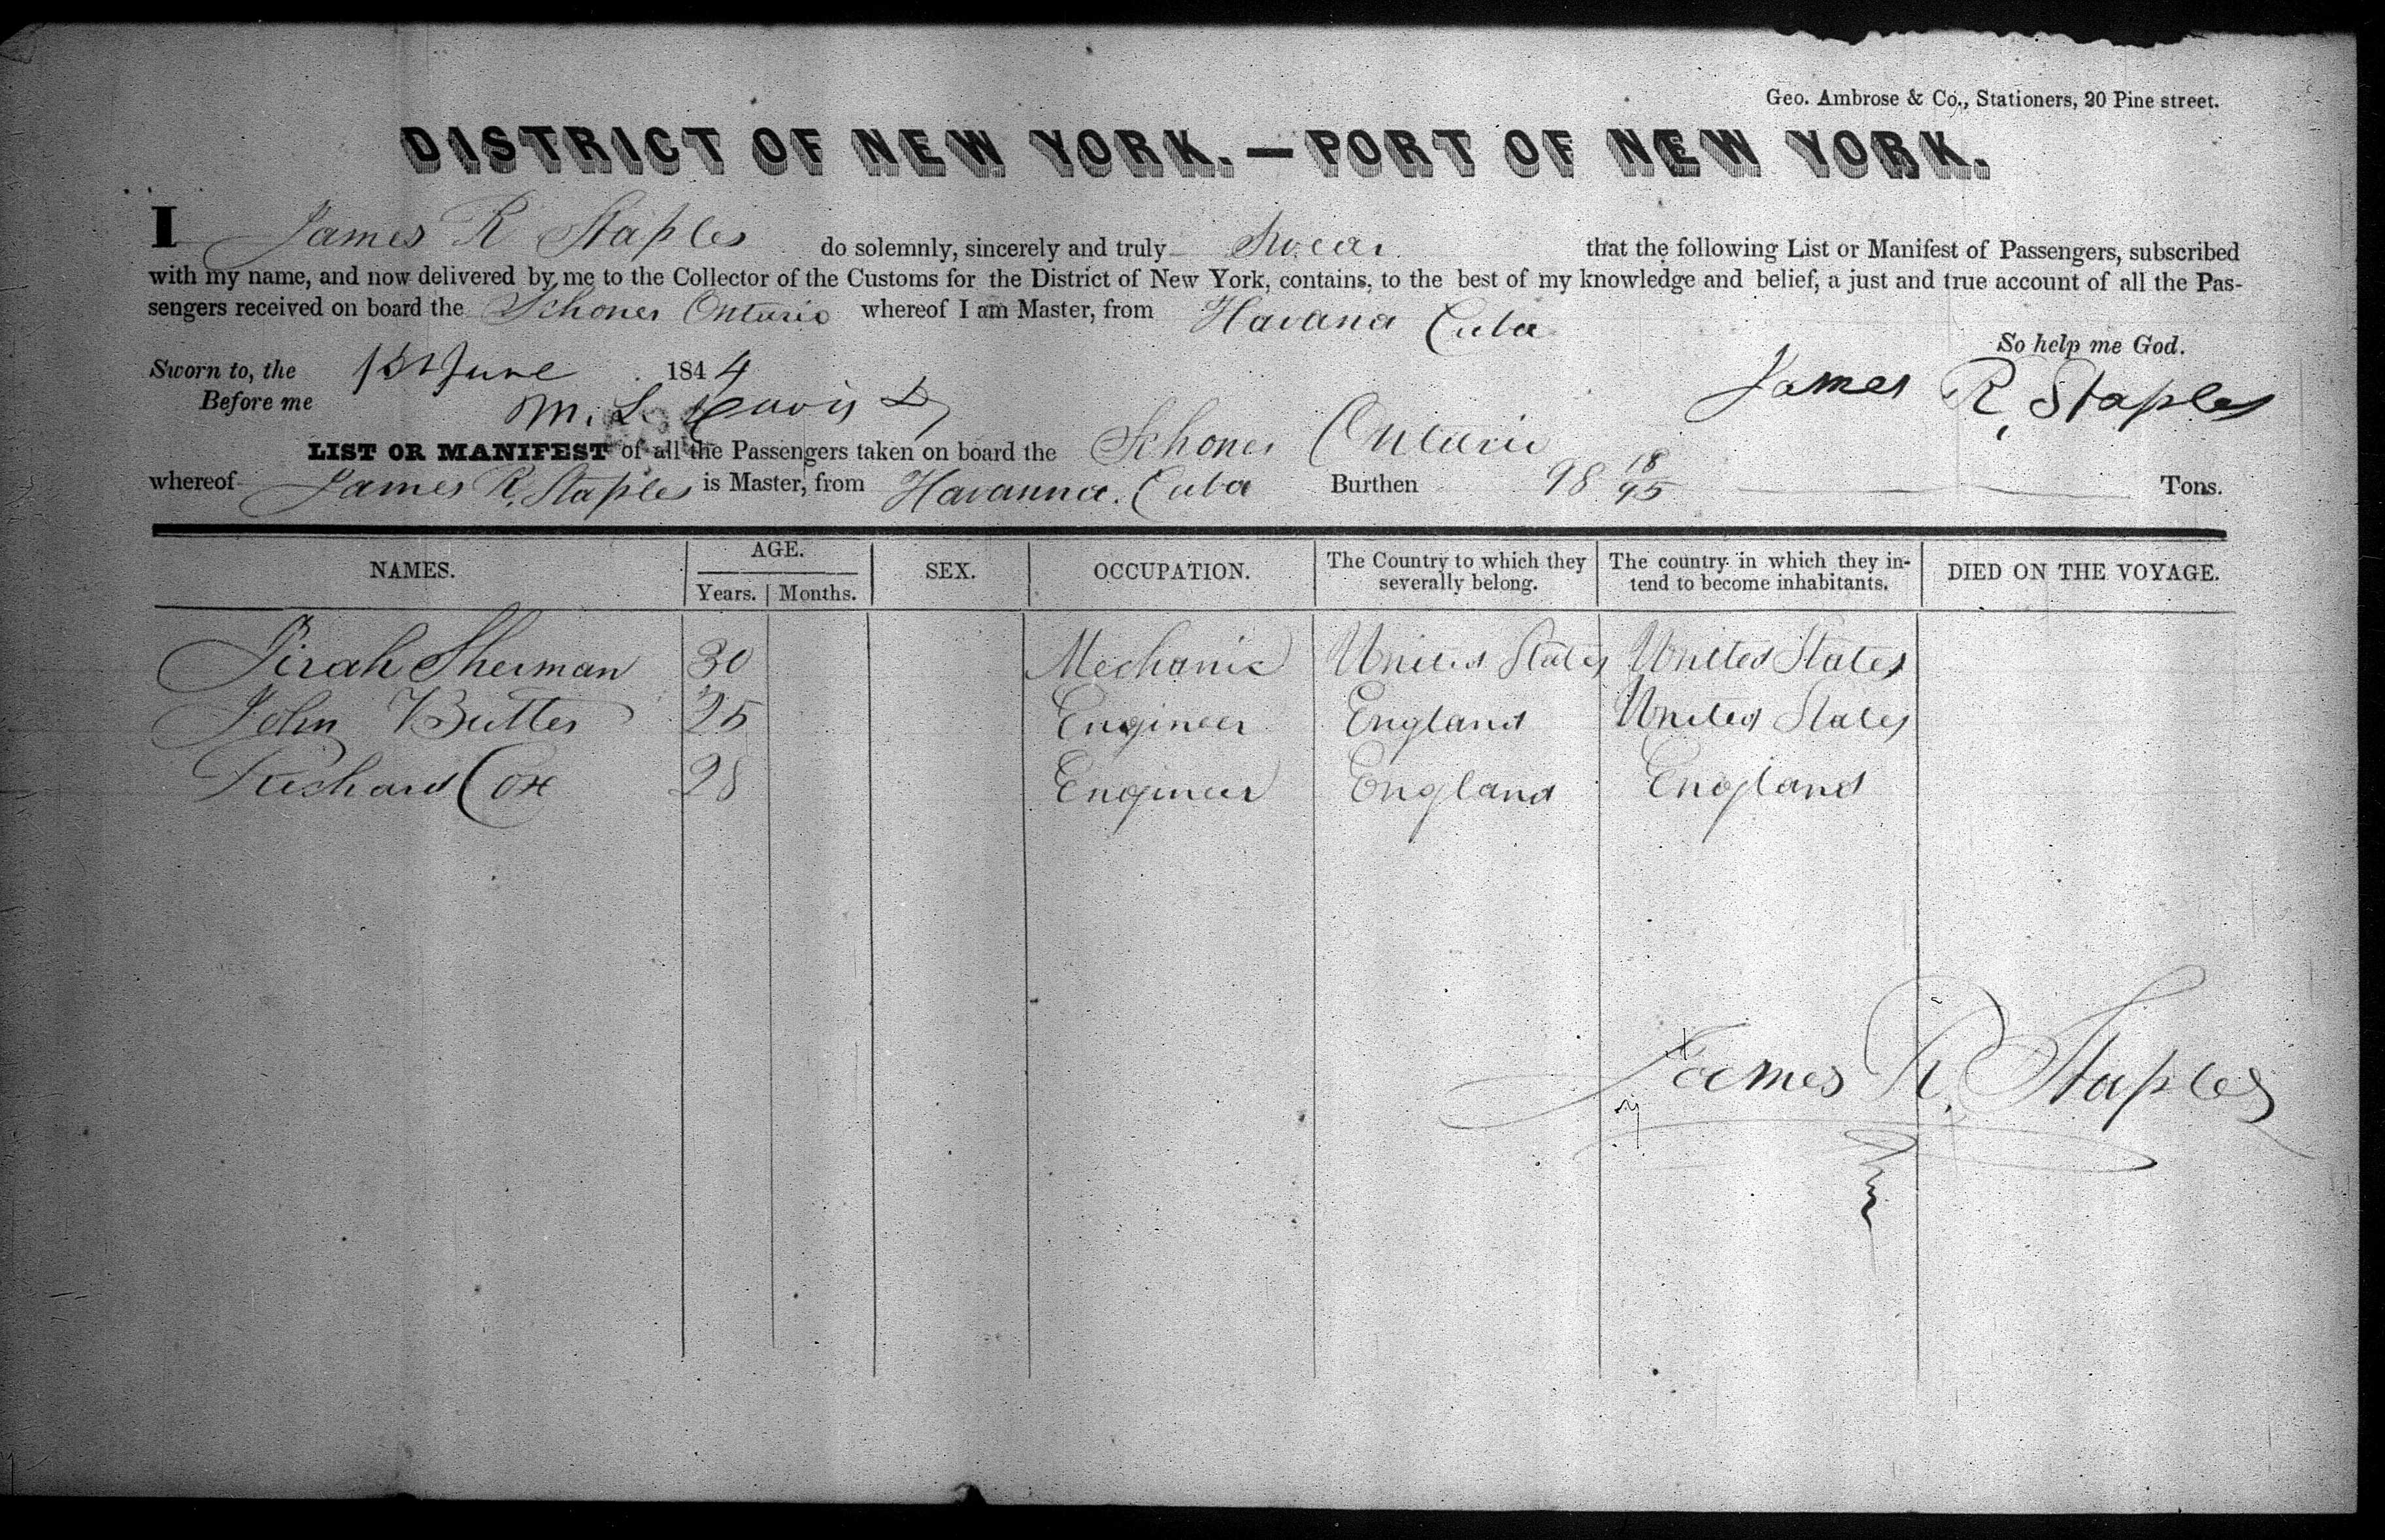 Geo. Ambrose & Co., Stationers, 20 Pine street.
DISTRICT OF NEW YORK.—PORT OF NEW YORK.
I James R Staples do solemnly, sincerely and truly Swear that the following List or Manifest of Passengers, subscribed
with my name, and now delivered by me to the Collector of the Customs for the District of New York, contains, to the best of my knowledge and belief, a just and true account of all the Pas-
sengers received on board the Schoner Ontario whereof I am Master, from Havana Cuba
So help me God.
Sworn to, the June 1844 James R. Staples
Before me M. L. Davis
LIST OR MANIFEST of all the Passengers taken on board the Schoner Ontario
whereof James R. Staples is Master, from Havanna. Cuba Burthen 98 18/95 Tons.
NAMES. AGE. SEX. OCCUPATION. The Country to which they severally belong. The country in which they in-tend to become inhabitants. DIED ON THE VOYAGE.
Years. Months.
Sherman 30 Mechanic United States United States
John Butter 25 Engineer England United States
Richard Cox 28 Engineer England England
James R. Staples